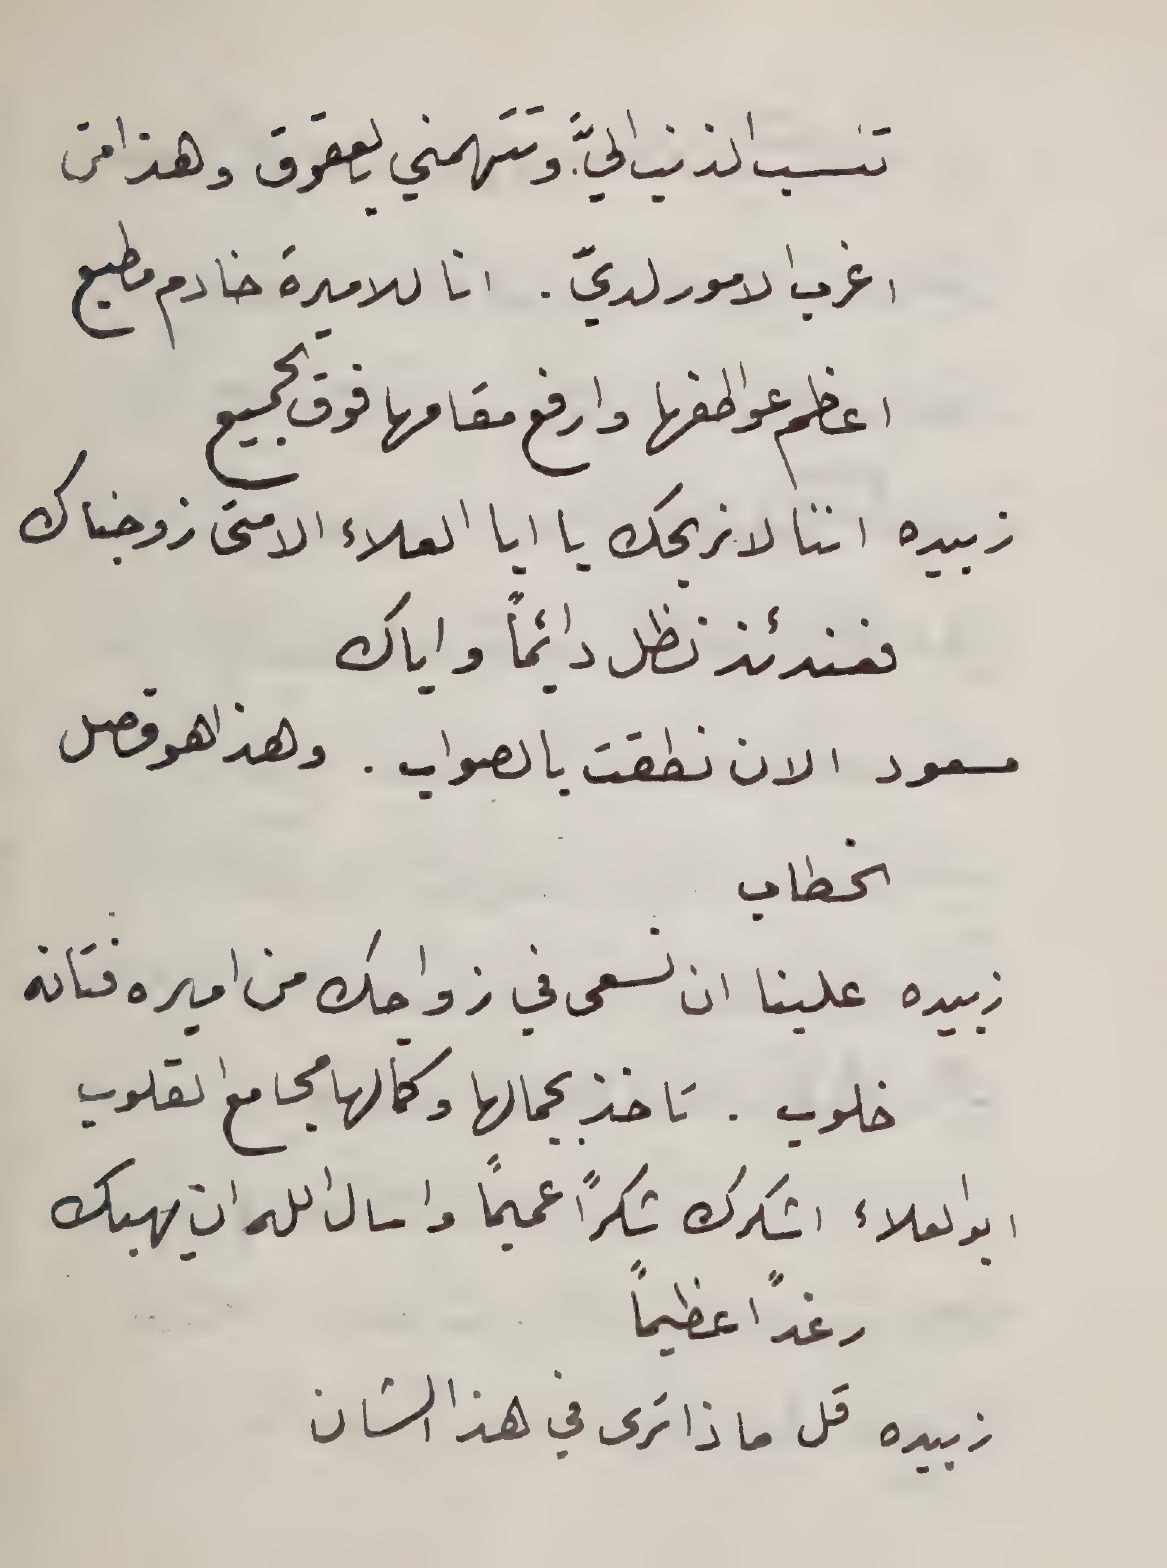 تنسب الذنب اليَّ. وتتهمني بالعقوق وهذا من
اغرب الامور لديّ . انا للاميرة خادم مطيع
اعظم عواطفها وارفع مقامها فوق الجميع
زبيده اننا لا نريحك يا ابا العلاء الا متى زوجناك
فعندئذ نظل دائماً واياك
مسعود الان نطقت بالصواب . وهذا هو فصل
الخطاب
زبيده علينا ان نسعى في زواجك من اميره فتانه
خلوب . تاخذ بجمالها وكمالها مجامع القلوب
ابو العلاء اشكرك شكراً عميماً واسال الله ان يهبك
رغداً عظيماً
زبيده قل ماذا ترى في هذا الشان